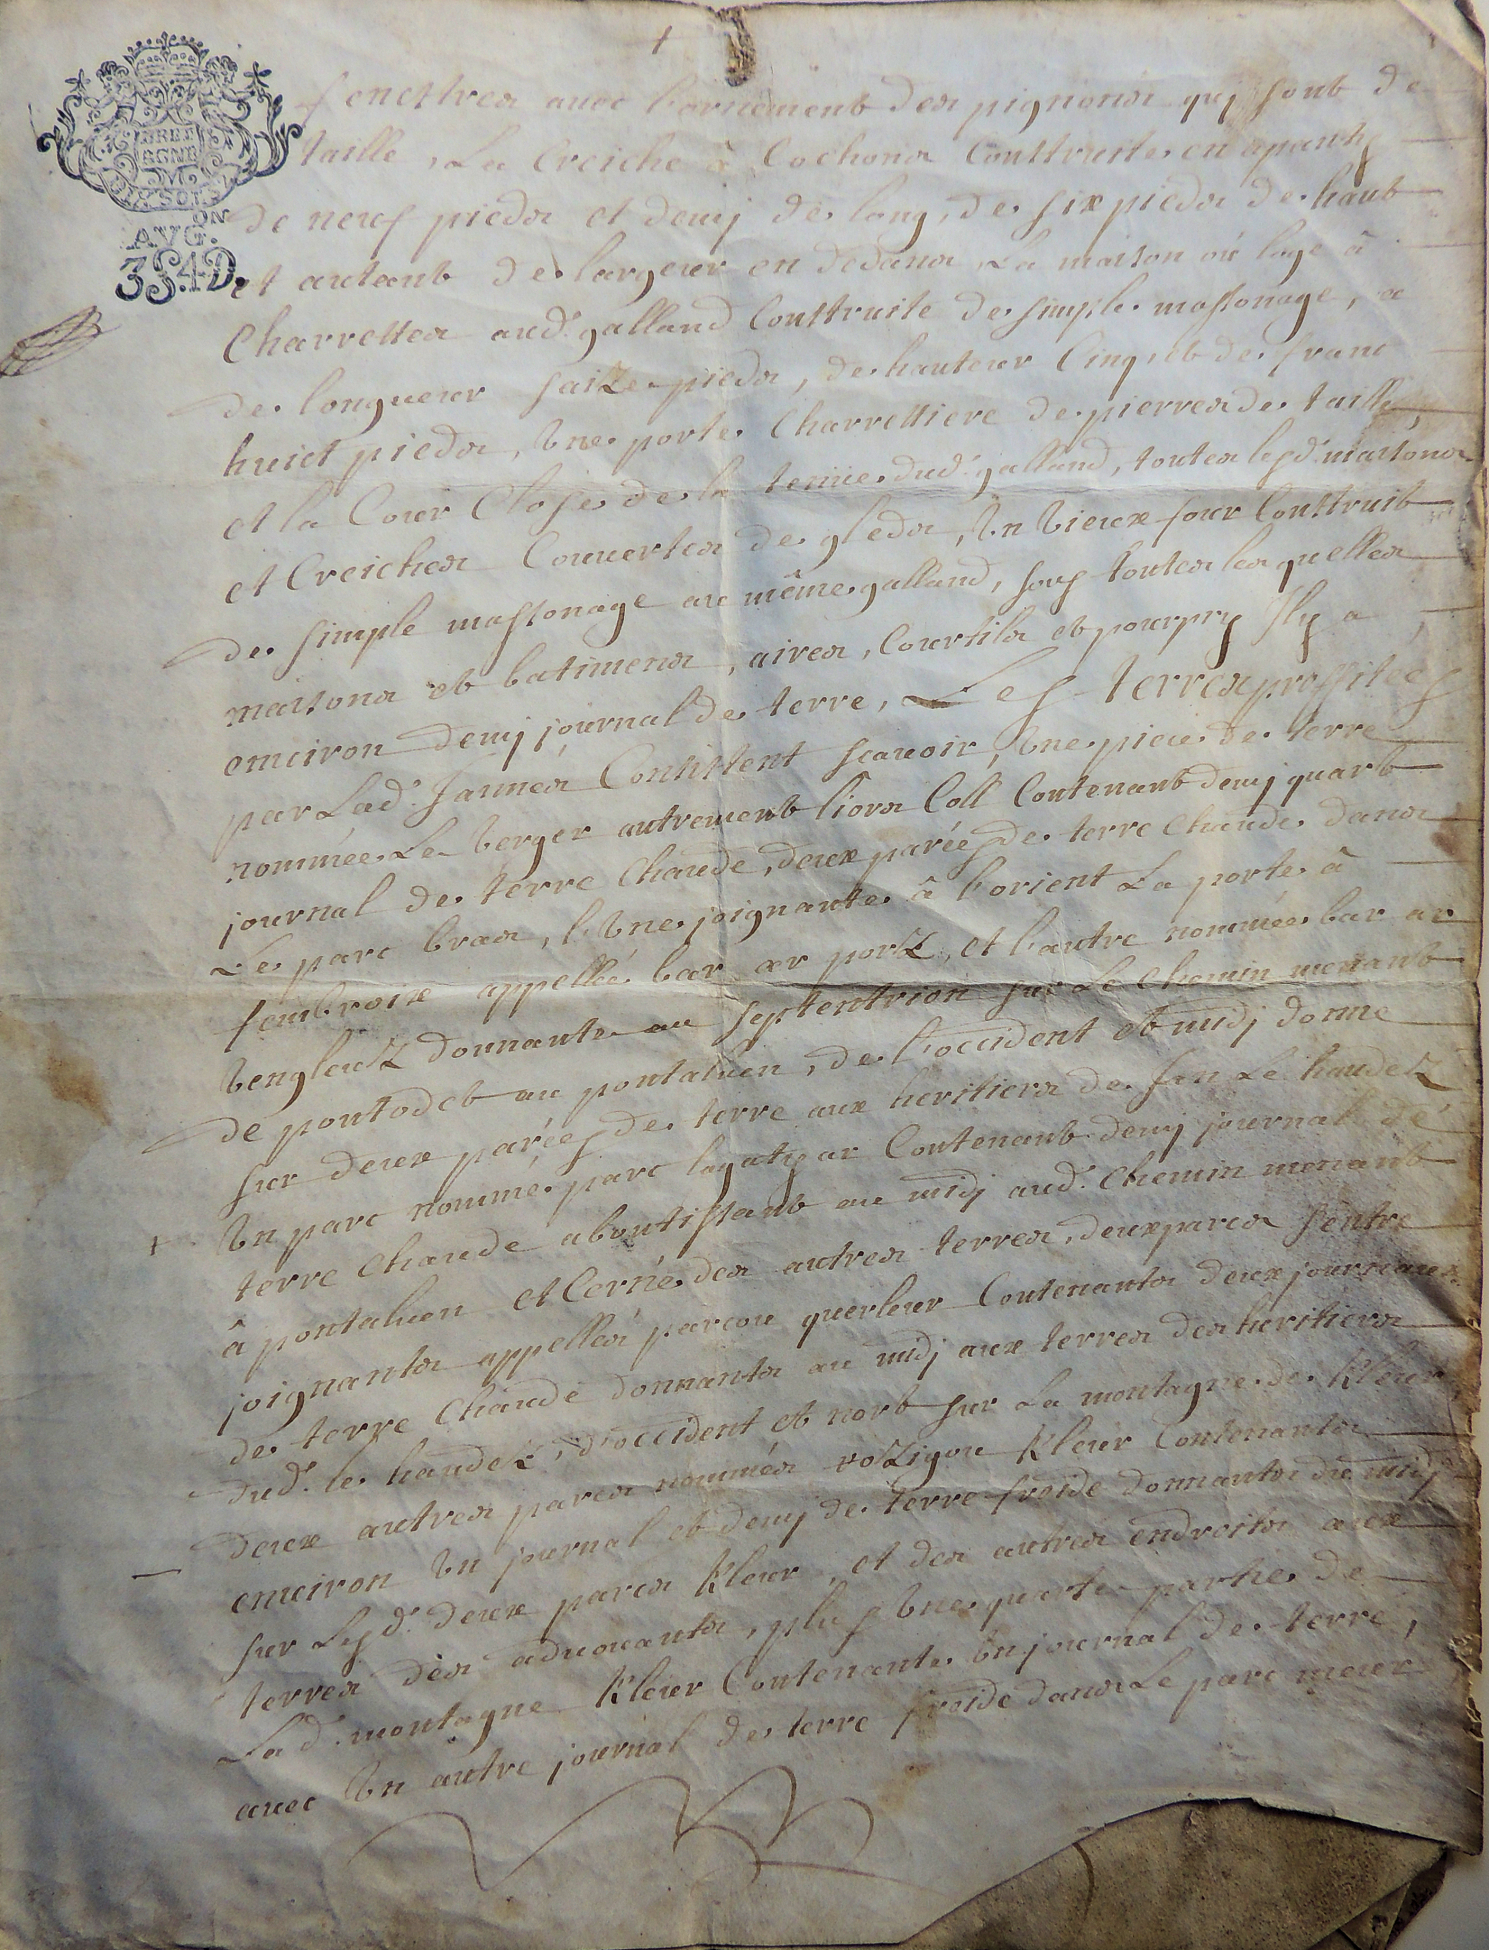 BRET
AGNE
M
DIX SOLS
ON
AVG.
3S.4D.
fenestres avec l'ornement des pignons qui sont de
taille, La Creiche à Cochons Construite en apanty
de neuf pieds et demj de long, de six pieds de haut
et autant de largeur en dedans, La maison où loge à
Charrettes aud. galland Construite de simple massonage, a
de longueur saize pieds, de hauteur Cinq, et de franc
huict pieds, Une porte Charrettiere de pierres de taille,
et la Cour Close de la tenüe dud. galland, toutes lesd. maisons
et Creiches Couvertes de gleds, Un Vieux four Construit
de simple massonage au même galland, sous toutes les quelles
maisons et batimens, aires, Courtils et pourpry Ily a
enviro­n demj journal de terre, Les terres proffitées
par Lad. Jannes Consistent scavoir, Une piece de terre
nommée Le Verger autrement liors Coll Contenant demj quart
journal de terre Chaude, deux parées de terre Chaude dans
Le parc bras, l'Une joignante à l'orient La porte à
fembroix appellée bar ar porz, et l'autre nommée bar ar
Vengleuz donnante au septentrion sur Le Chemin menant
de pontodet au pontaluen, de l'occident et midj donne
sur deux parées de terre aux heritiers de Jan Le haudez
Un parc nommé parc lagatyar Contenant demj journal de
terre Chaude aboutissant au midj aud. Chemin menant
à pontaluen et Cerné des autres terres, deux parcs s'entre
joignants appellés parcou querleur Contenants deux journaux
de terre Chaude donnants au midj aux terres des heritiers
dud. le haudez, d'occident et nort sur La montagne de Kleur
deux autres parcs nommés rozigou Kleur Contenants
environ Un journal et demj de terre froide donnants du midj
sur Lesd. deux parcs Kleur, et des autres endroits aux
terres des advouants, plus Une quarte partie de
Lad. montagne Kleur Contenante Un journal de terre,
avec Un autre journal de terre froide dans Le parc meur